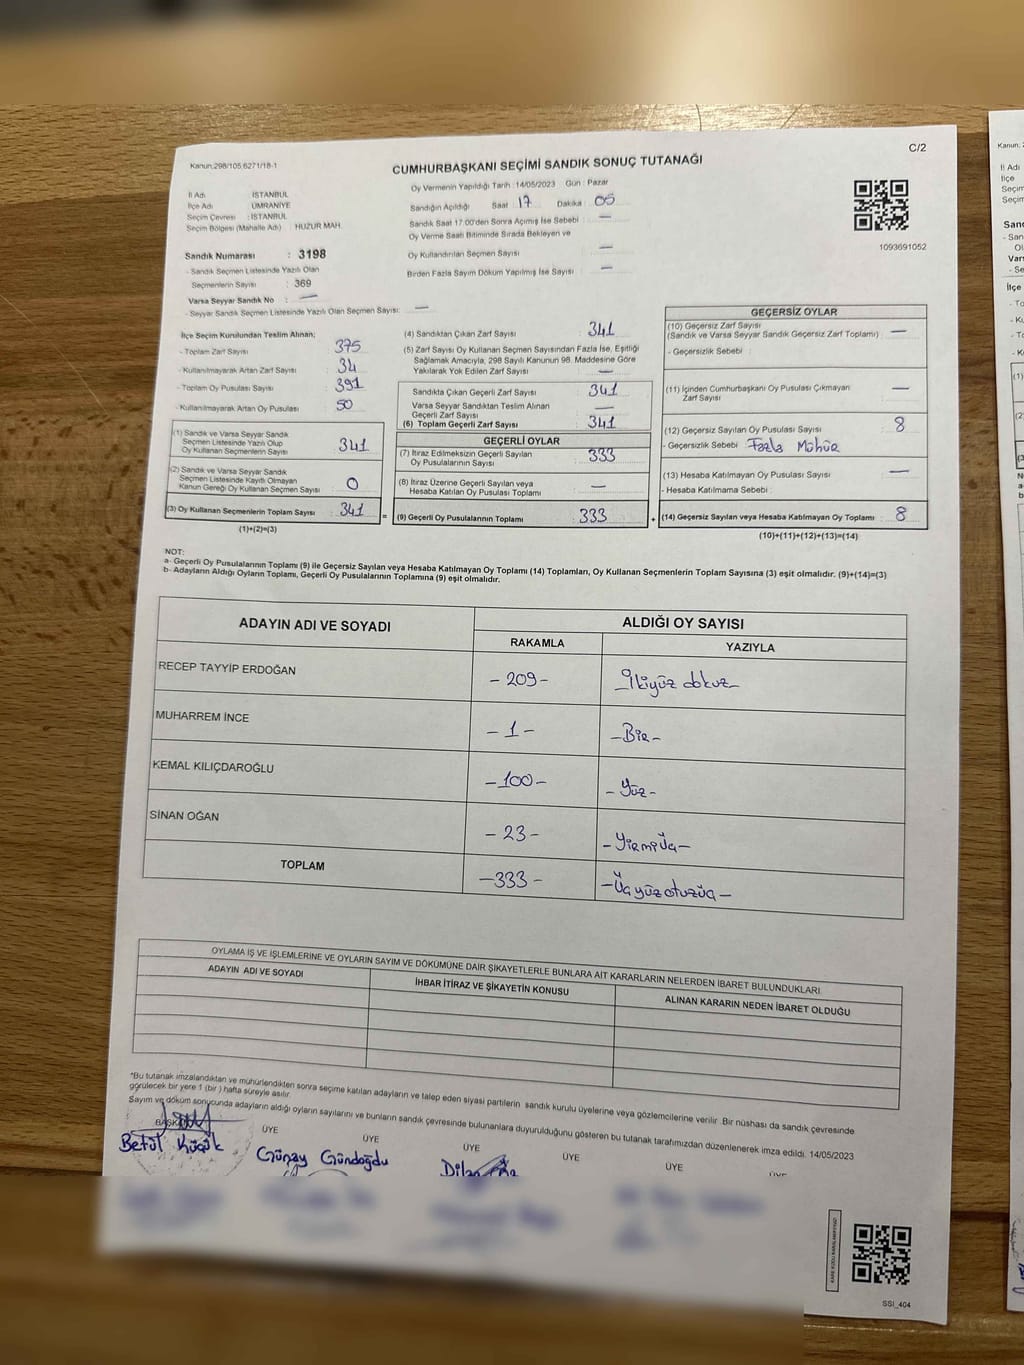 C/2
Kanun:298/105,6271/18-1
CUMHURBAŞKANI SEÇİMİ SANDIK SONUÇ TUTANAĞI
Oy Vermenin Yapıldığı Tarih : 14/05/2023 Gün : Pazar
İl Adı : İSTANBUL
İlçe Adı : ÜMRANİYE
Seçim Çevresi : İSTANBUL
Seçim Bölgesi (Mahalle Adı) : HUZUR MAH.
Sandığın Açıldığı Saat : 17 Dakika : 05
Sandık Saat 17.00'den Sonra Açılmış İse Sebebi : —
Oy Verme Saati Bitiminde Sırada Bekleyen ve
Oy Kullandırılan Seçmen Sayısı : —
Birden Fazla Sayım Döküm Yapılmış İse Sayısı : —
1093691052
Sandık Numarası : 3198
- Sandık Seçmen Listesinde Yazılı Olan
Seçmenlerin Sayısı : 369
Varsa Seyyar Sandık No : —
- Seyyar Sandık Seçmen Listesinde Yazılı Olan Seçmen Sayısı: —
İlçe Seçim Kurulundan Teslim Alınan;
- Toplam Zarf Sayısı : 375
- Kullanılmayarak Artan Zarf Sayısı : 34
- Toplam Oy Pusulası Sayısı : 391
- Kullanılmayarak Artan Oy Pusulası : 50
(1) Sandık ve Varsa Seyyar Sandık
Seçmen Listesinde Yazılı Olup
Oy Kullanan Seçmenlerin Sayısı : 341
(2) Sandık ve Varsa Seyyar Sandık
Seçmen Listesinde Kayıtlı Olmayan
Kanun Gereği Oy Kullanan Seçmen Sayısı : 0
(3) Oy Kullanan Seçmenlerin Toplam Sayısı : 341
(1)+(2)=(3)
(4) Sandıktan Çıkan Zarf Sayısı : 341
(5) Zarf Sayısı Oy Kullanan Seçmen Sayısından Fazla İse, Eşitliği
Sağlamak Amacıyla, 298 Sayılı Kanunun 98. Maddesine Göre
Yakılarak Yok Edilen Zarf Sayısı : —
Sandıkta Çıkan Geçerli Zarf Sayısı : 341
Varsa Seyyar Sandıktan Teslim Alınan
Geçerli Zarf Sayısı : —
(6) Toplam Geçerli Zarf Sayısı : 341
GEÇERLİ OYLAR
(7) İtiraz Edilmeksizin Geçerli Sayılan
Oy Pusulalarının Sayısı : 333
(8) İtiraz Üzerine Geçerli Sayılan veya
Hesaba Katılan Oy Pusulası Toplamı : —
= (9) Geçerli Oy Pusulalarının Toplamı : 333
GEÇERSİZ OYLAR
(10) Geçersiz Zarf Sayısı
(Sandık ve Varsa Seyyar Sandık Geçersiz Zarf Toplamı) : —
- Geçersizlik Sebebi :
(11) İçinden Cumhurbaşkanı Oy Pusulası Çıkmayan
Zarf Sayısı : —
(12) Geçersiz Sayılan Oy Pusulası Sayısı : 8
- Geçersizlik Sebebi : Fazla Mühür
(13) Hesaba Katılmayan Oy Pusulası Sayısı : —
- Hesaba Katılmama Sebebi :
+ (14) Geçersiz Sayılan veya Hesaba Katılmayan Oy Toplamı : 8
(10)+(11)+(12)+(13)=(14)
NOT:
a- Geçerli Oy Pusulalarının Toplamı (9) ile Geçersiz Sayılan veya Hesaba Katılmayan Oy Toplamı (14) Toplamları, Oy Kullanan Seçmenlerin Toplam Sayısına (3) eşit olmalıdır. (9)+(14)=(3)
b- Adayların Aldığı Oyların Toplamı, Geçerli Oy Pusulalarının Toplamına (9) eşit olmalıdır.
ADAYIN ADI VE SOYADI ALDIĞI OY SAYISI
RAKAMLA YAZIYLA
RECEP TAYYİP ERDOĞAN - 209 - - İkiyüz dokuz -
MUHARREM İNCE - 1 - - Bir -
KEMAL KILIÇDAROĞLU - 100 - - Yüz -
SİNAN OĞAN - 23 - - Yirmi Üç -
TOPLAM - 333 - - Üç yüz otuzüç -
OYLAMA İŞ VE İŞLEMLERİNE VE OYLARIN SAYIM VE DÖKÜMÜNE DAİR ŞİKAYETLERLE BUNLARA AİT KARARLARIN NELERDEN İBARET BULUNDUKLARI
ADAYIN ADI VE SOYADI İHBAR İTİRAZ VE ŞİKAYETİN KONUSU ALINAN KARARIN NEDEN İBARET OLDUĞU
*Bu tutanak imzalandıktan ve mühürlendikten sonra seçime katılan adayların ve talep eden siyasi partilerin sandık kurulu üyelerine veya gözlemcilerine verilir. Bir nüshası da sandık çevresinde
görülecek bir yere 1 (bir) hafta süreyle asılır.
Sayım ve döküm sonucunda adayların aldığı oyların sayılarını ve bunların sandık çevresinde bulunanlara duyurulduğunu gösteren bu tutanak tarafımızdan düzenlenerek imza edildi. 14/05/2023
BAŞKAN ÜYE ÜYE ÜYE ÜYE ÜYE
Betül Küçük Günay Gündoğdu Dilan
SSI_404